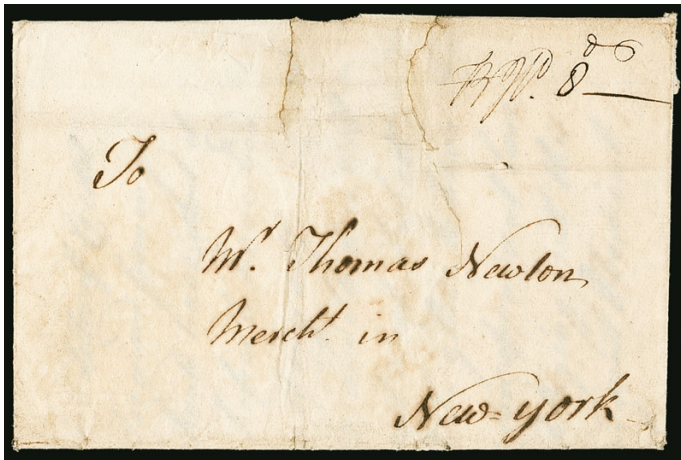 8
To
Mr. Thomas Newton
Mercht. in
New=york